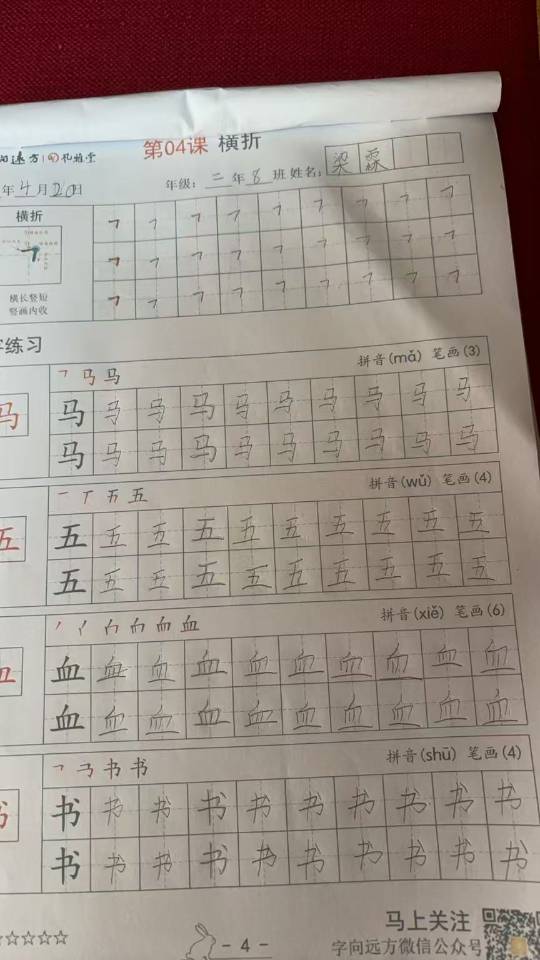 向远方 礼雅堂
第04课 横折
年4月20日 年级：二年8班 姓名：梁霖
横折
㇕ ㇕ ㇕ ㇕ ㇕ ㇕ ㇕ ㇕ ㇕
㇕ ㇕ ㇕ ㇕ ㇕ ㇕ ㇕ ㇕ ㇕
横长竖短
竖画内收
㇕ ㇕ ㇕ ㇕ ㇕ ㇕ ㇕ ㇕ ㇕
字练习
马 马 拼音(mǎ) 笔画(3)
马 马 马 马 马 马 马 马 马 马 马
马 马 马 马 马 马 马 马 马 马
一 丅 五 五 拼音(wǔ) 笔画(4)
五 五 五 五 五 五 五 五 五 五 五
五 五 五 五 五 五 五 五 五 五
血 拼音(xiě) 笔画(6)
血 血 血 血 血 血 血 血 血 血 血
血 血 血 血 血 血 血 血 血 血
书 书 拼音(shū) 笔画(4)
书 书 书 书 书 书 书 书 书 书 书
书 书 书 书 书 书 书 书 书 书
☆☆☆☆☆ - 4 - 马上关注
字向远方微信公众号